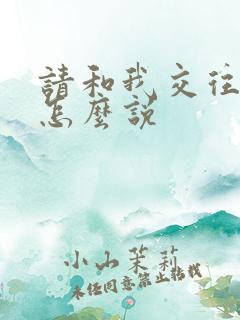 請和我交往
怎麼說
小山茉莉
未经同意禁止转载